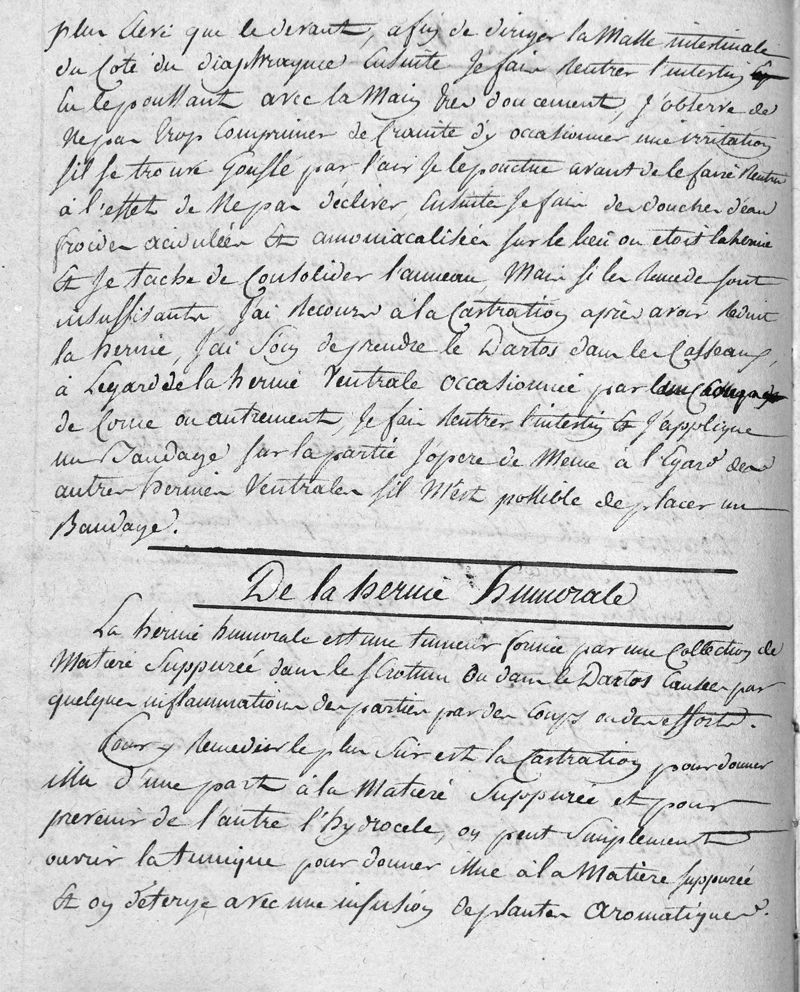 plus élevé que le devant, afin de diriger la Masse intestinale
du Coté du diaphragme Ensuite Je fais Rentrer l'intestin
En le poussant avec la Main tres doucement, J'observe de
Ne pas trop Comprimer de Crainte d'y occasionner une irritation
s'il se trouve gonflé par l'air Je le ponctue avant de le faire Rentrer
à l'effet de Ne pas déclirer, Ensuite Je fais des douches d'eau
froides acidulées Et amoniacalisées sur le lieu ou etoit la hernie
Et Je tache de Consolider l'anneau, Mais si les Remedes sont
insuffisants J'ai Recours à la Castration après avoir Reduit
la hernie, J'ai Soin de prendre le Dartos dans les Casseaux,
à Legard de la hernie Ventrale occasionnée par
de Corne ou autrement, Je fais Rentrer l'intestin Et J'applique
un Bandage sur la partie J'opere de Meme à l'Egard des
autres hernies Ventrales s'il M'est possible de placer un
Bandage.
De la hernie humorale
La hernie humorale est une tumeur formée par une Collection de
Matiere Suppurée dans le Scrotum Ou dans le Dartos Causée par
quelques inflammations des parties par des Coups ou des efforts.
Pour y Remedier le plus Sur est la Castration pour donner
issu d'une part à la Matiere Suppurée et pour
prevenir de l'autre l'hydrocele, on peut Simplement
ouvrir la tunique pour donner issue à la Matière suppurée
Et on déterge avec une infusion de plantes aromatiques.